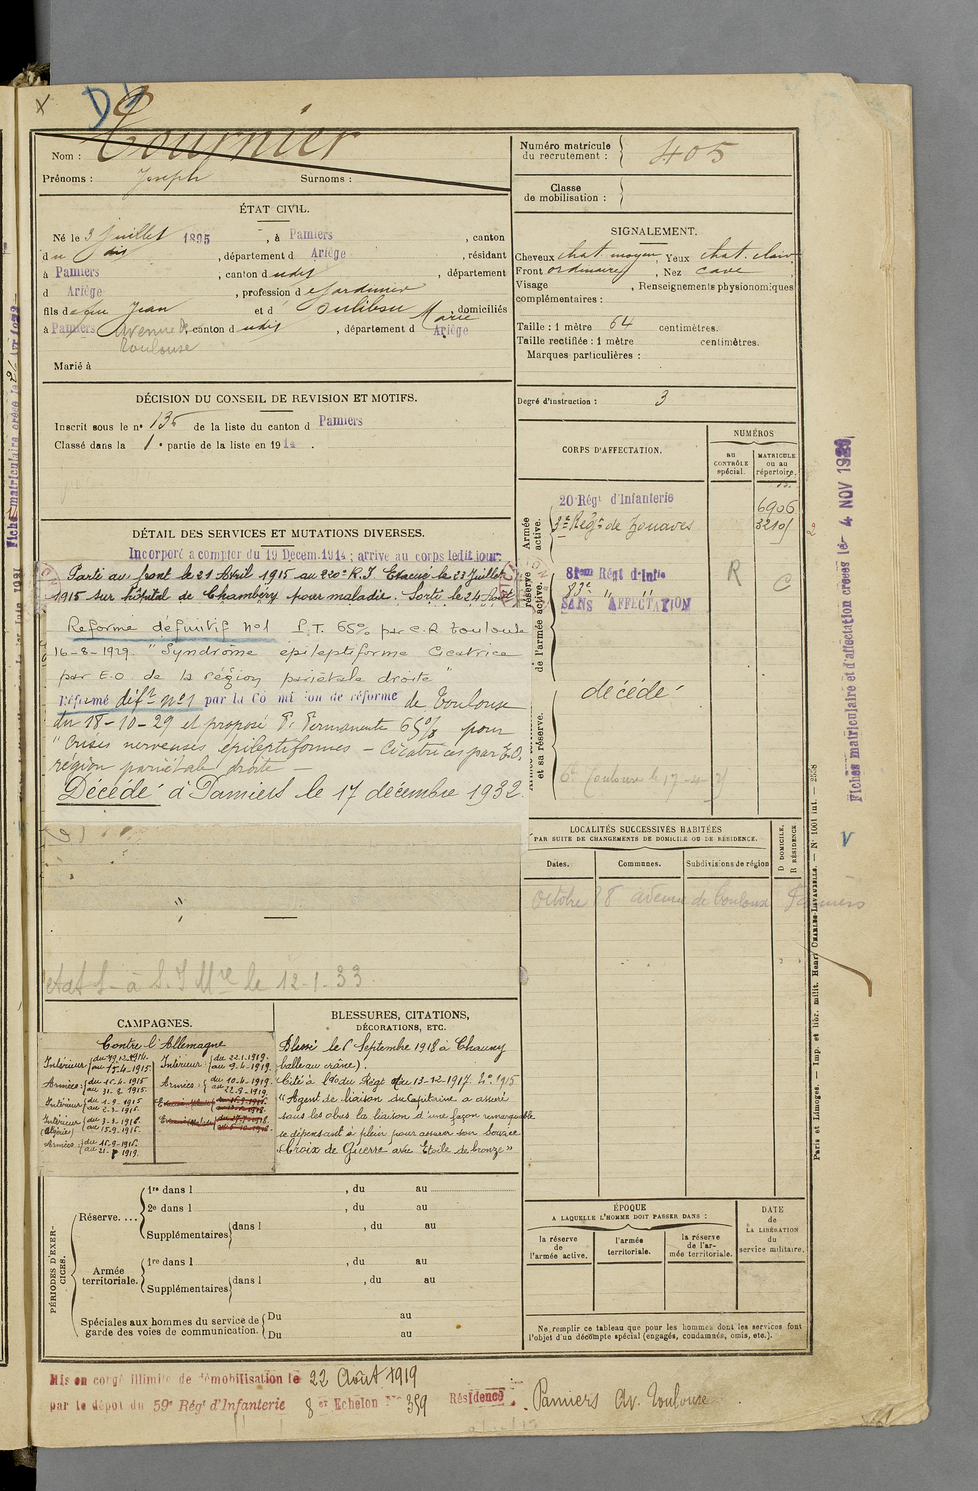 X
Nom : Tournier
Prénoms : Joseph Surnoms :
Numéro matricule du recrutement : 405
Classe de mobilisation :
ÉTAT CIVIL.
Né le 3 Juillet 1895, à Pamiers, canton
du dit, département d Ariège, résidant
à Pamiers, canton d udit, département
d Ariège, profession de Jardinier
fils de feu Jean et d Marie, domiciliés
à Pamiers Avenue de Toulouse, canton d udit, département d Ariège
Marié à
SIGNALEMENT.
Cheveux chat. moyen, Yeux chat. clair
Front ordinaire, Nez cave,
Visage , Renseignements physionomiques
complémentaires :
Taille : 1 mètre 64 centimètres.
Taille rectifiée : 1 mètre centimètres.
Marques particulières :
Degré d'instruction : 3
DÉCISION DU CONSEIL DE REVISION ET MOTIFS.
Inscrit sous le n° 135 de la liste du canton d Pamiers
Classé dans la 1e partie de la liste en 1914.
DÉTAIL DES SERVICES ET MUTATIONS DIVERSES.
Incorporé à compter du 19 Décem. 1914 ; arrivé au corps ledit jour.
Parti au front le 21 Avril 1915 au 220e R.I Evacué le 23 Juillet
1915 sur hôpital de Chambéry pour maladie. Sorti le 24 Aout
Réforme définitif N°1 P.T. 65% par C.R Toulouse
16-8-1929. "Syndrôme épileptiforme Cicatrice
par E.O. de la région pariétale droite"
Réformé déf.t n°1 par la Commission de réforme de Toulouse
du 18-10-29 et proposé P. Permanente 65% pour
"Crises nerveuses épileptiformes – Cicatrices par E.O.
région pariétale droite –
Décédé à Pamiers le 17 décembre 1932.
le 12-1-33
CORPS D'AFFECTATION.
NUMÉROS
au CONTRÔLE spécial.
MATRICULE ou au répertoire.
Armée active.
20 Régt d'Infanterie 6906
3e Régt de Zouaves 32101
réserve de l'armée active.
81em Régt d'Infie R C
83e " "
SANS AFFECTATION
et sa réserve.
décédé
LOCALITÉS SUCCESSIVES HABITÉES
PAR SUITE DE CHANGEMENTS DE DOMICILE OU DE RÉSIDENCE.
Dates. Communes. Subdivisions de région
D DOMICILE. R RÉSIDENCE
Octobre 8 avenue de Toulouse Pamiers
CAMPAGNES.
Contre l'Allemagne
Intérieur { du 19.12.1914. au 15.4.1915.
Armées : { du 16.4.1915 au 31.8.1915.
Intérieur { du 1.9.1915 au 2.3.1916.
Intérieur (Algérie) { du 3.3.1916. au 15.9.1916.
Intérieur : { du 22.1.1919. au 9.4.1919.
Armées : { du 10.4.1919. au 22.8.1919.
BLESSURES, CITATIONS,
DÉCORATIONS, ETC.
Blessé le 6 Septembre 1918 à Chauny
(balle au crâne).
Cité à l'o. du Régt du 13-12-1917. N° 1915
"Agent de liaison du Capitaine a assuré
sous les obus la liaison d'une façon remarquable
se dépensant à plein pour assurer son service
Croix de Guerre avec Etoile de bronze"
PÉRIODES D'EXERCICES.
Réserve.... 1re dans l , du au
2e dans l , du au
Supplémentaires dans l , du au
Armée territoriale. 1re dans l , du au
Supplémentaires dans l , du au
Spéciales aux hommes du service de garde des voies de communication. Du au
Du au
ÉPOQUE
A LAQUELLE L'HOMME DOIT PASSER DANS :
la réserve de l'armée active.
l'armée territoriale.
la réserve de l'armée territoriale.
DATE de LA LIBÉRATION du service militaire.
Ne remplir ce tableau que pour les hommes dont les services font
l'objet d'un décompte spécial (engagés, condamnés, omis, etc.).
Mis en congé illimité de démobilisation le 22 Août 1919
par le dépôt du 59e Régt d'Infanterie 8 er Echelon N° 359 Résidence : Pamiers Av. Toulouse
Fiches matriculaire et d'affectation créées le - 4 NOV 1929
Paris et Limoges. — Imp. et libr. milit. Henri CHARLES-LAVAUZELLE. — N° 1001 int. — 2558